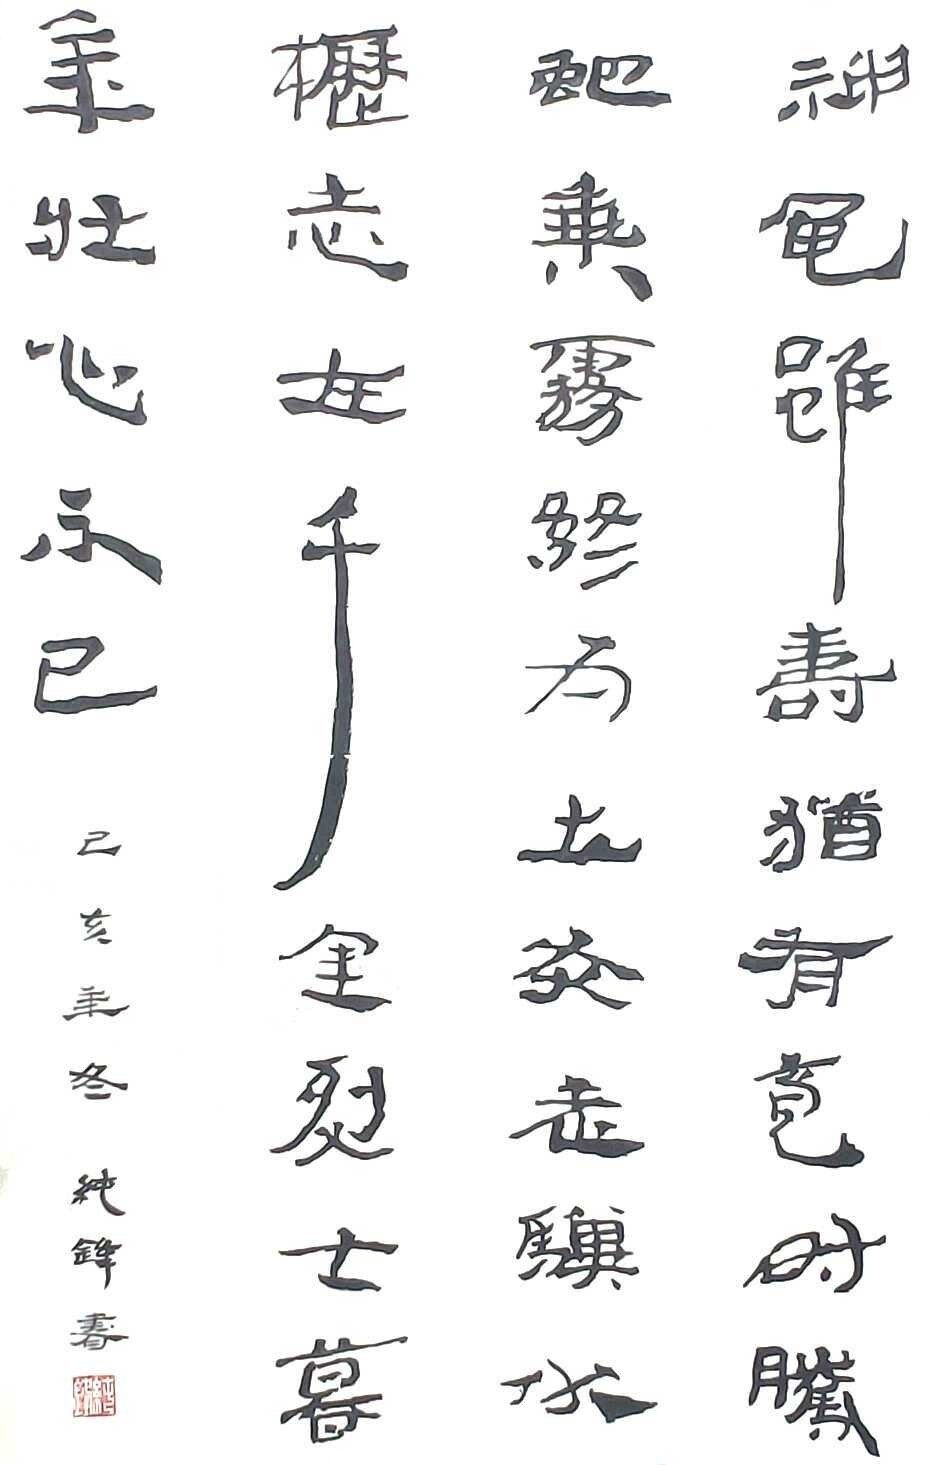 神龜雖壽猶有竟时騰
虵乘霧終为土灰老驥伏
櫪志在千里烈士暮
年壯心不已
己亥年冬 純鋒書